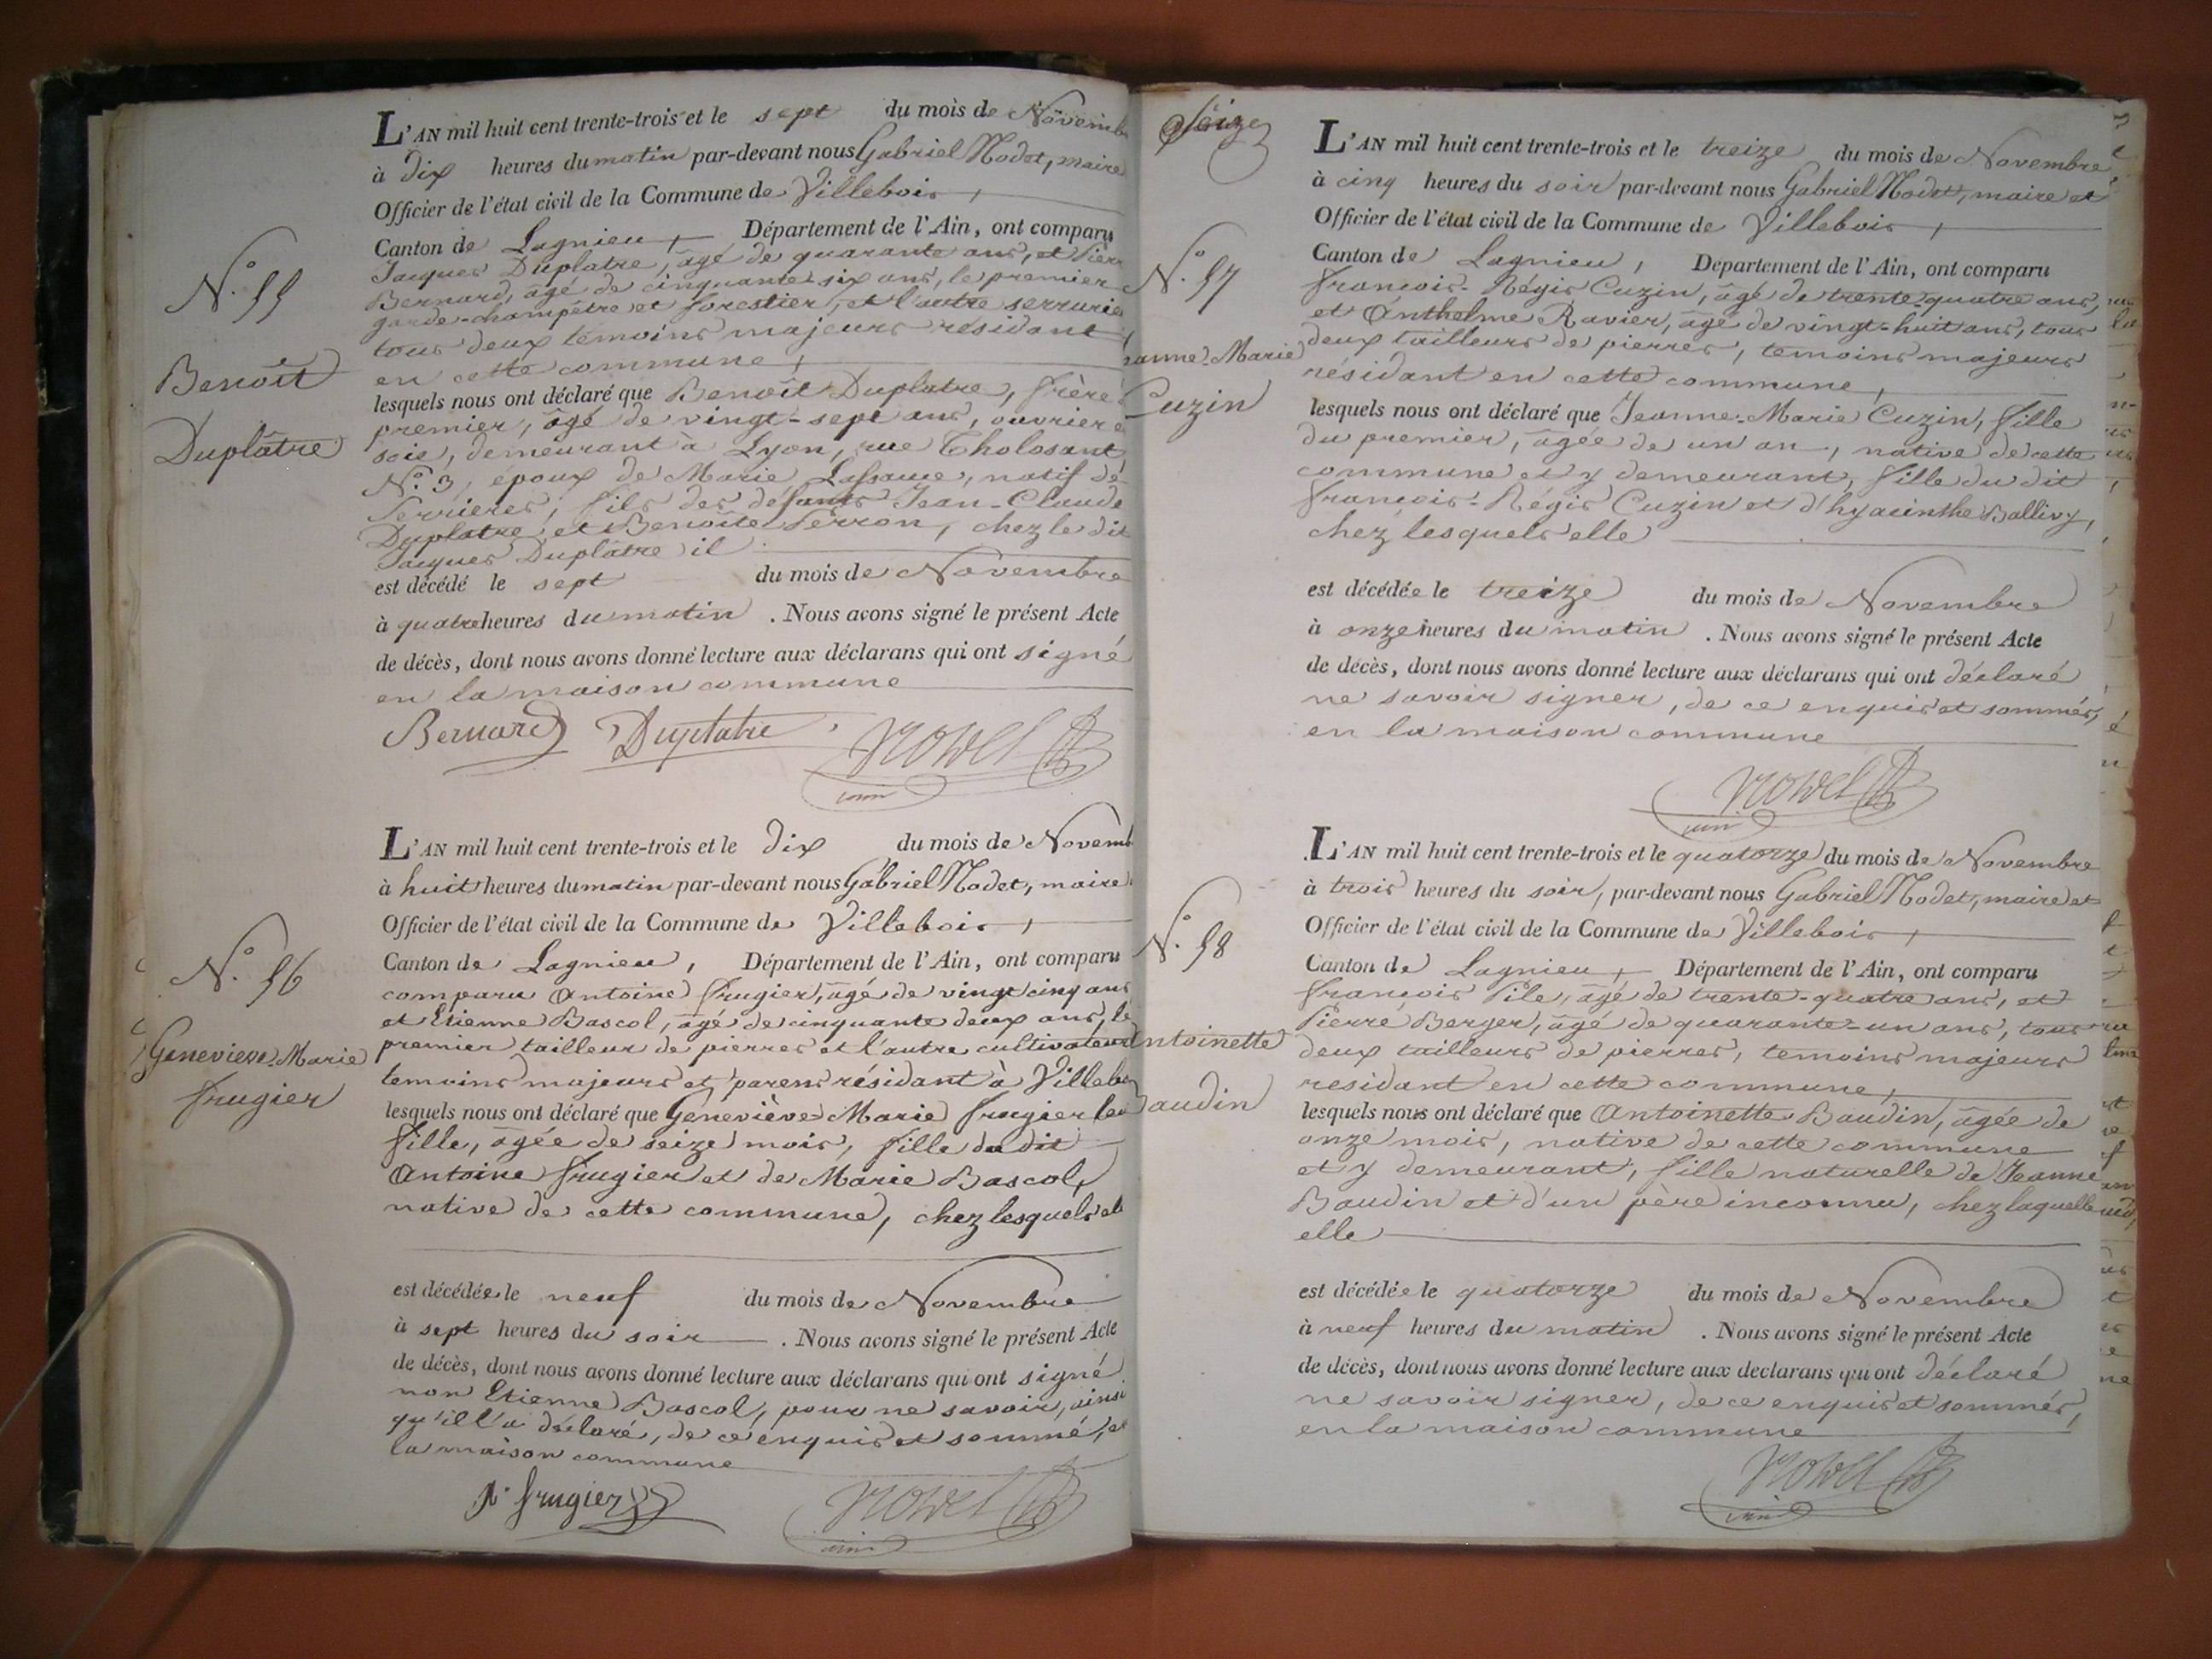 L'AN mil huit cent trente-trois et le sept du mois de Novemb
à dix heures du matin par-devant nous Gabriel Nodet, maire
Officier de l'état civil de la Commune de Villebois,
Canton de Lagnieu, Département de l'Ain, ont comparu
Jacques Duplatre, âgé de quarante ans, et Pierr
Bernard, âgé de cinquante six ans, le premier
garde-champêtre et forestier, et l'autre serrurie
tous deux témoins majeurs résidant
en cette commune,
N.° 55
Benoît
Duplâtre
lesquels nous ont déclaré que Benoît Duplatre, frère
premier, âgé de vingt-sept ans, ouvrier e
soie, demeurant à Lyon, rue Tholosant
N.° 3, époux de Marie, natif de
Serrières, fils des defunts Jean-Claude
Duplatre et Benoîte Perron, chez le dit
Jacques Duplâtre il
est décédé le sept du mois de Novembre
à quatre heures du matin. Nous avons signé le présent Acte
de décès, dont nous avons donné lecture aux déclarans qui ont signé
en la maison commune
Bernard Duplatre Nodet
L'AN mil huit cent trente-trois et le dix du mois de Novemb
à huit heures du matin par-devant nous Gabriel Nodet, maire
Officier de l'état civil de la Commune de Villebois,
Canton de Lagnieu, Département de l'Ain, ont comparu
comparu Antoine Frugier, âgé de vingt cinq ans
et Etienne Bascol, âgé de cinquante deux ans, le
premier tailleur de pierres et l'autre cultivateur
temoins majeurs et parens résidant à Villebo
N.° 56
Geneviève Marie
Frugier
lesquels nous ont déclaré que Geneviève Marie Frugier
fille, âgée de seize mois, fille du dit
Antoine Frugier et de Marie Bascol,
native de cette commune, chez lesquels el
est décédée le neuf du mois de Novembre
à sept heures du soir. Nous avons signé le présent Acte
de décès, dont nous avons donné lecture aux déclarans qui ont signé
non Etienne Bascol, pour ne savoir, ainsi
qu'il l'a déclaré, de ce enquis et sommé, e
la maison commune
A. Frugier Nodet
Seize
L'AN mil huit cent trente-trois et le treize du mois de Novembre
à cinq heures du soir par-devant nous Gabriel Nodet, maire et
Officier de l'état civil de la Commune de Villebois,
Canton de Lagnieu, Département de l'Ain, ont comparu
François-Régis Cuzin, âgé de trente-quatre ans,
et Anthelme Ravier, âgé de vingt-huit ans, tous
deux tailleurs de pierres, temoins majeurs
résidant en cette commune,
N.° 57
eanne-Marie
Cuzin
lesquels nous ont déclaré que Jeanne-Marie Cuzin, fille
du premier, âgée de un an, native de cette
commune et y demeurant, fille du dit
François-Régis Cuzin et d'hyacinthe Ballivy,
chez lesquels elle
est décédée le treize du mois de Novembre
à onze heures du matin. Nous avons signé le présent Acte
de décès, dont nous avons donné lecture aux déclarans qui ont déclaré
ne savoir signer, de ce enquis et sommés,
en la maison commune
Nodet
L'AN mil huit cent trente-trois et le quatorze du mois de Novembre
à trois heures du soir, par-devant nous Gabriel Nodet, maire et
Officier de l'état civil de la Commune de Villebois,
Canton de Lagnieu, Département de l'Ain, ont comparu
François Pile, âgé de trente-quatre ans, et
Pierre Berger, âgé de quarante-un ans, tous
deux tailleurs de pierres, temoins majeurs
residant en cette commune,
N.° 58
Antoinette
Baudin
lesquels nous ont déclaré que Antoinette Baudin, âgée de
onze mois, native de cette commune
et y demeurant, fille naturelle de Jeanne
Baudin et d'un père inconnu, chez laquelle
elle
est décédée le quatorze du mois de Novembre
à neuf heures du matin. Nous avons signé le présent Acte
de décès, dont nous avons donné lecture aux declarans qui ont déclaré
ne savoir signer, de ce enquis et sommés,
en la maison commune
Nodet